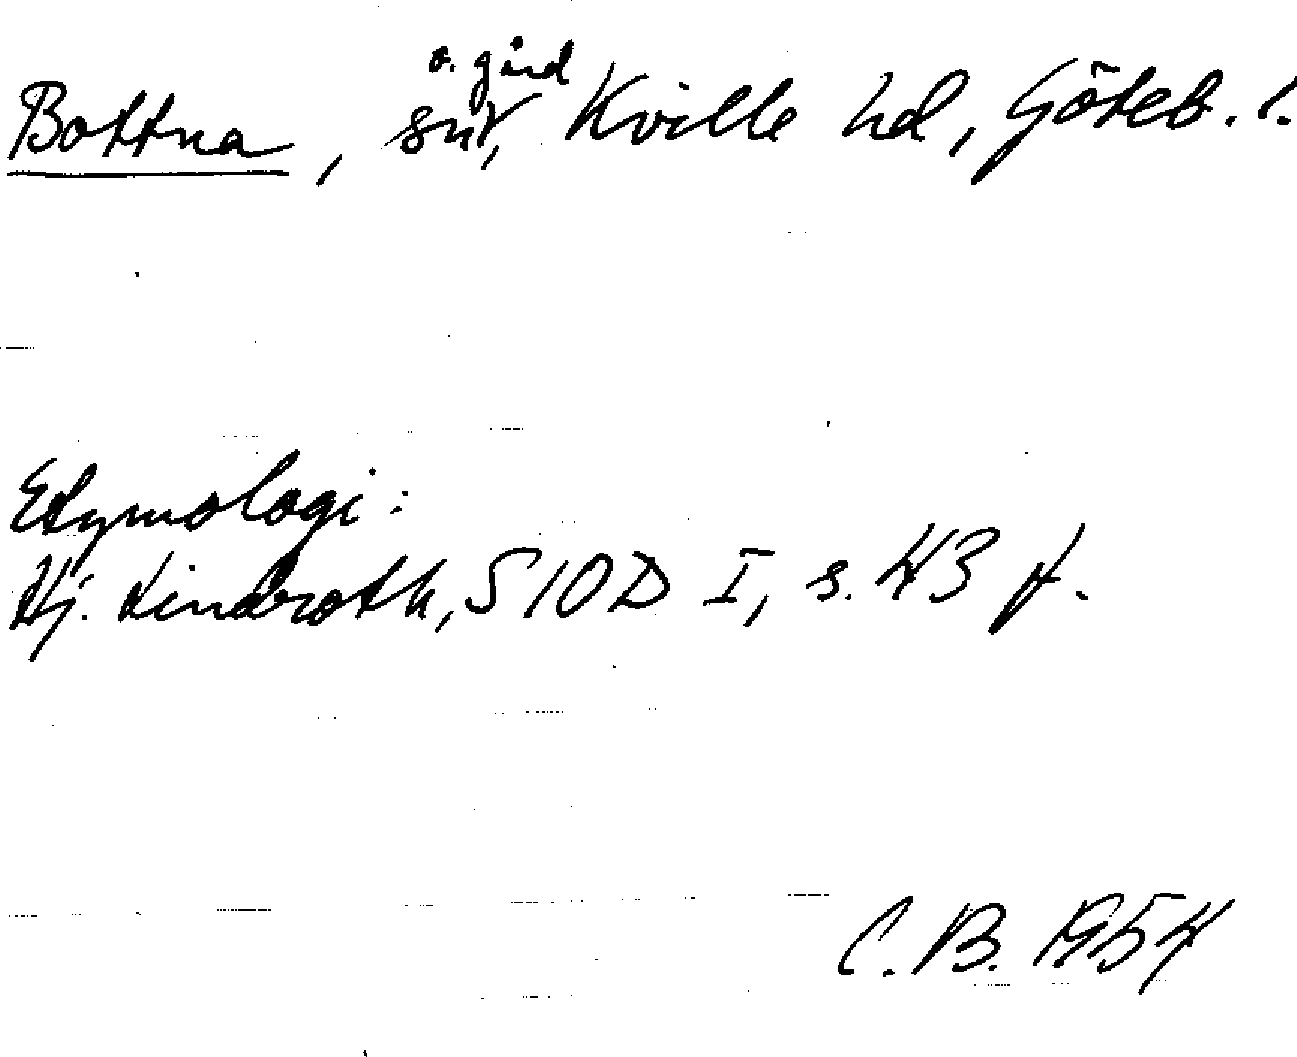 Bottna, sn o. gård, Kville hd, Göteb. l.
Etymologi:
Hj. Lindroth, SIOD I, s. 43 f.
C. B. 1954